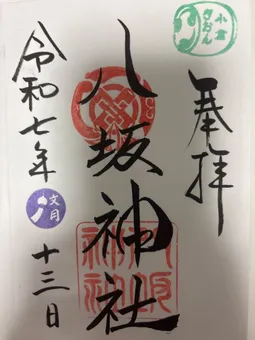 小倉
ぎおん
奉拝
八坂神社
八坂
神社
令和七年
文月
十三日